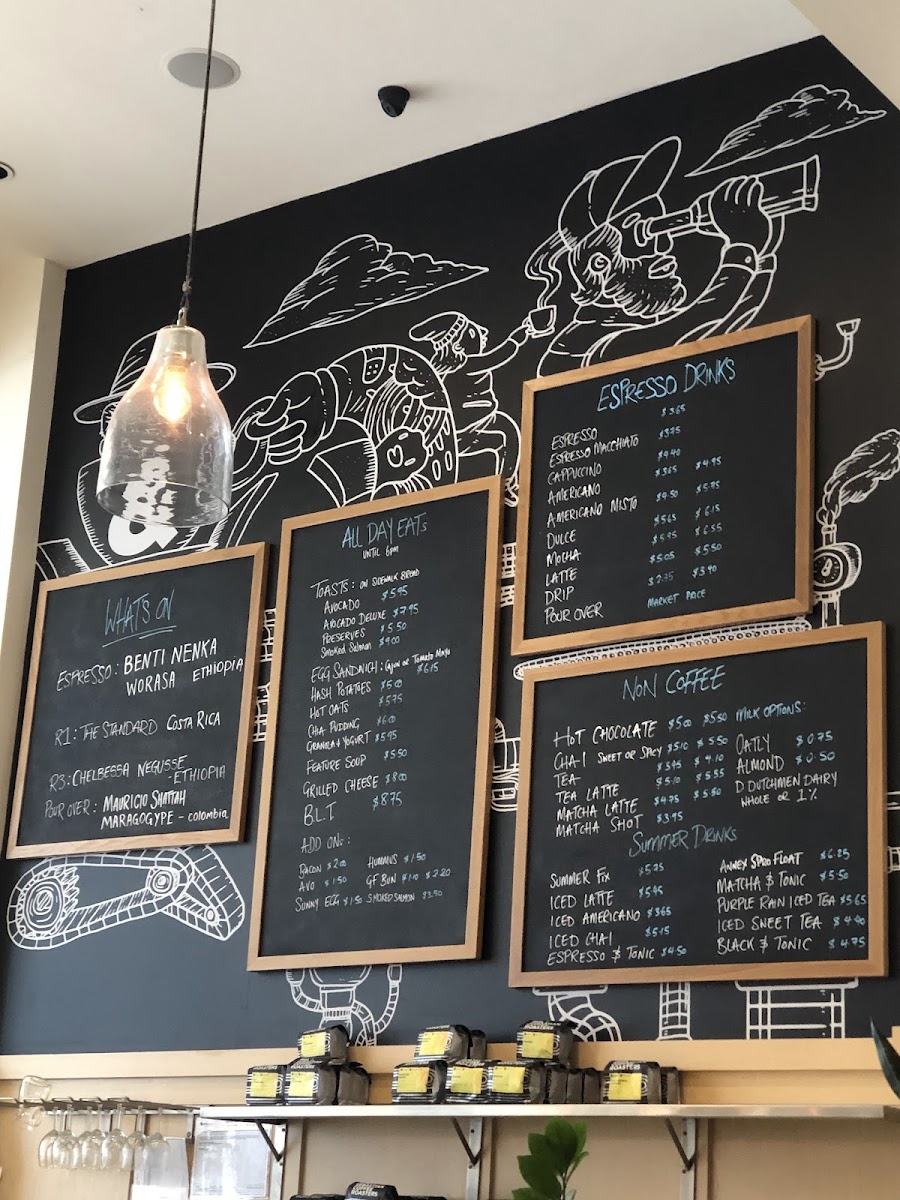 WHAT'S ON
ESPRESSO: BENTI NENKA
WORASA ETHIOPIA
R1: THE STANDARD COSTA RICA
R3: CHELBESSA NEGUSSE
- ETHIOPIA
POUR OVER: MAURICIO SHATTAH
MARAGOGYPE - colombia
ALL DAY EATS
UNTIL 6pm
TOASTS: ON SIDEWALK BREAD
AVOCADO $5.95
AVOCADO DELUXE $7.95
PRESERVES $5.50
SMOKED SALMON $9.00
EGG SANDWICH: CAJUN or TOMATO MAYO
$6.15
HASH POTATOES $5.00
HOT OATS $5.75
CHIA PUDDING $6.00
GRANOLA & YOGURT $5.95
FEATURE SOUP $5.50
GRILLED CHEESE $8.00
B.L.T. $8.75
ADD ONS:
BACON $2.00 HUMMUS $1.50
AVO $1.50 GF BUN $1.10 $2.20
SUNNY EGG $1.50 SMOKED SALMON $3.50
ESPRESSO DRINKS
ESPRESSO $3.65
ESPRESSO MACCHIATO $3.75
CAPPUCCINO $4.40
AMERICANO $3.65 $4.95
AMERICANO MISTO $4.50 $5.35
DULCE $5.65 $6.15
MOCHA $5.95 $6.55
LATTE $5.05 $5.50
DRIP $2.75 $3.40
POUR OVER MARKET PRICE
NON COFFEE
HOT CHOCOLATE $5.00 $5.50
CHAI SWEET OR SPICY $5.10 $5.50
TEA $3.95 $4.10
TEA LATTE $5.10 $5.55
MATCHA LATTE $4.75 $5.50
MATCHA SHOT $3.95
MILK OPTIONS:
OATLY $0.75
ALMOND $0.50
D DUTCHMEN DAIRY
WHOLE OR 1%
SUMMER DRINKS
SUMMER FIX $5.25
ICED LATTE $5.45
ICED AMERICANO $3.65
ICED CHAI $5.15
ESPRESSO & TONIC $4.50
ANNEX SPRO FLOAT $6.25
MATCHA & TONIC $5.50
PURPLE RAIN ICED TEA $5.65
ICED SWEET TEA $4.40
BLACK & TONIC $4.75
ROASTERS